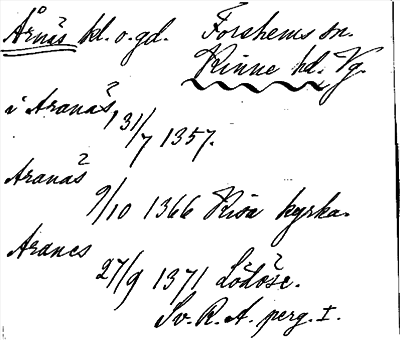 Årnäs kl. o. gd. Forshems sn.
Kinne hd. Vg.
i Aranäs 31/7 1357.
Aranäs 9/10 1366 Risa kyrka.
Aranes 27/9 1371 Lödöse.
Sv. R. A. perg. I.